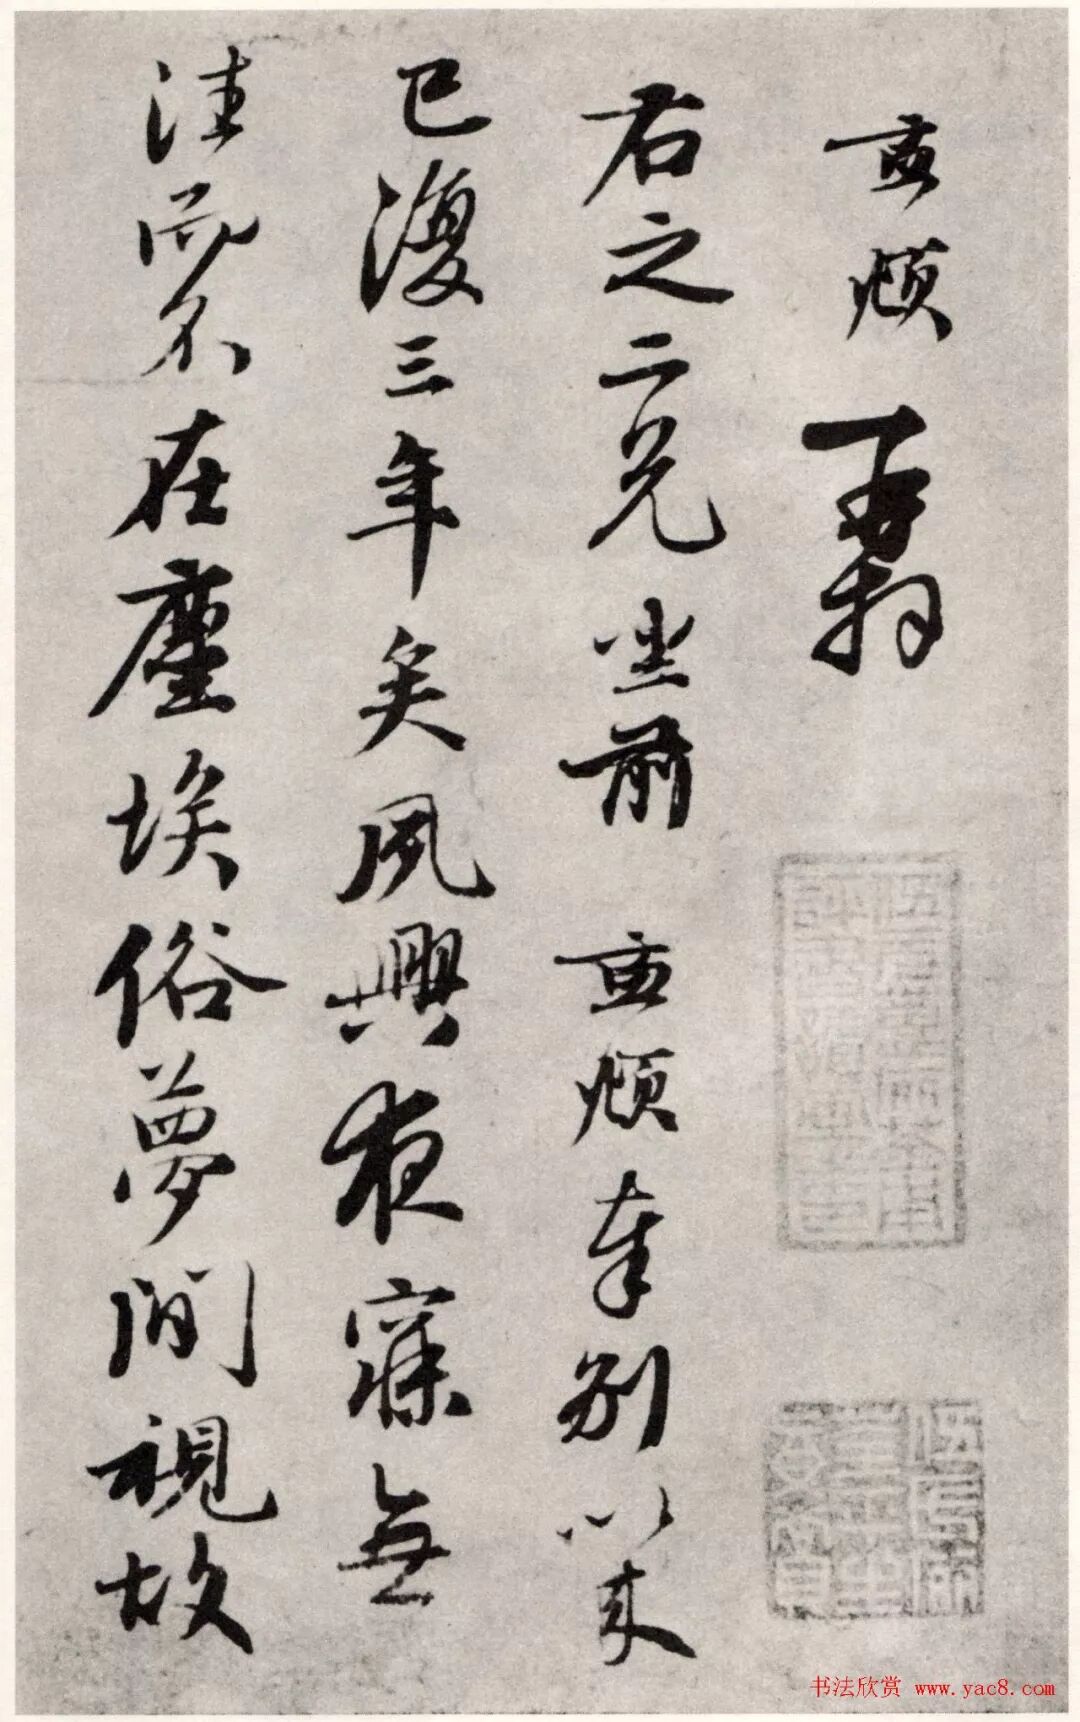 孟頫再拜
右之二兄坐前孟頫奉别以来
已復三年矣夙興夜寐無
往而不在塵埃俗夢間視故
书法欣赏 www.yac8.com